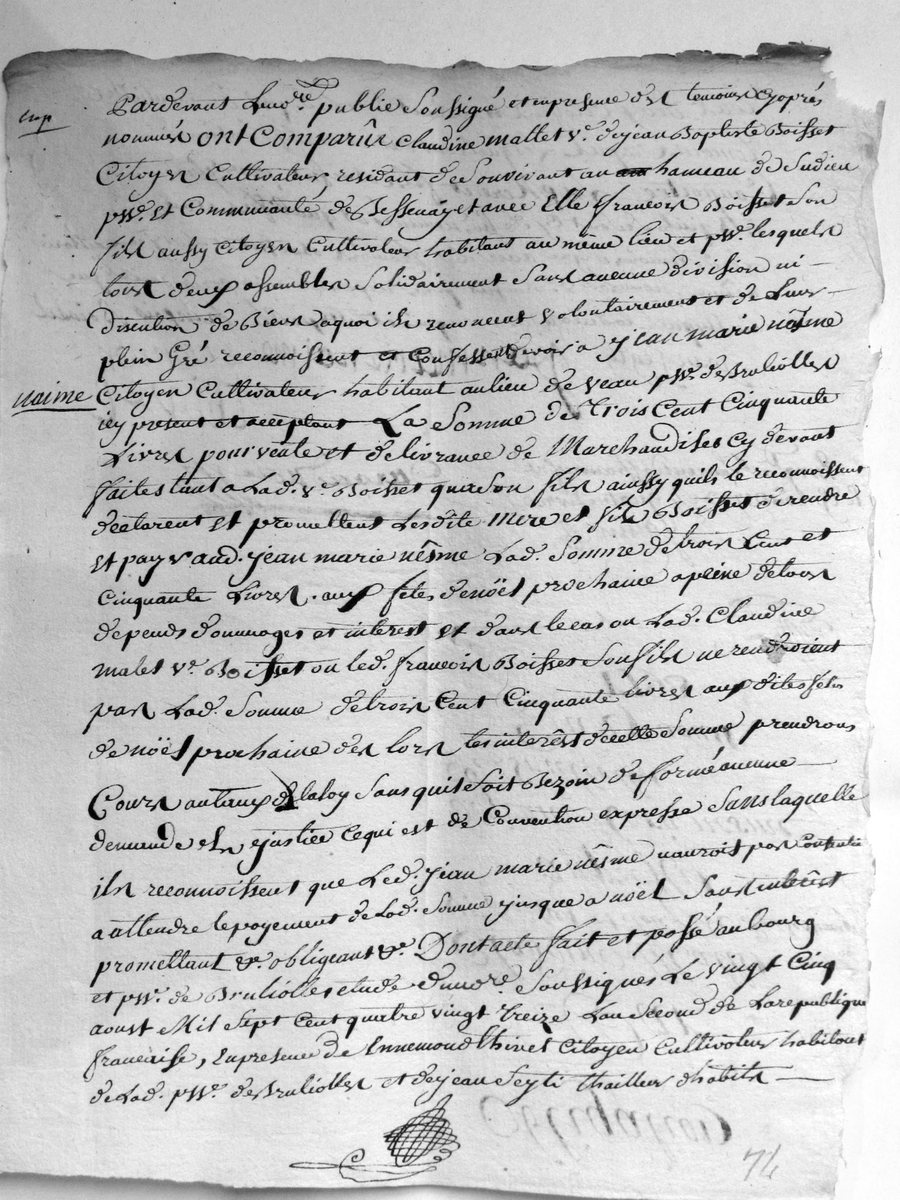 Pardevant Le no.re publie Soussigné et en presence des temoins cy après
nommés ont Comparûs Claudine mallet v.e de jean Baptiste Boisset
Citoyen Cultivateur, residant de Son vivant au hameau de Sudieu
pss.e et Communauté de Bessenay et avec Elle francois Boisset Son
fils aussy Citoyen Cultivateur habitant au même lieu et pss.e lesquels
tous deux assembles Solidairement Sans aucune division ni
discution de Biens aquoi ils renoncent volontairement et de Leur
plein Gré reconnoissent et Confessent devoir a jean marie nésme
naime Citoyen Cultivateur habitant au lieu de veau pss.e de Brulioles
icy present et acceptant La Somme de Trois Cent Cinquante
Livres pour vente et délivrance de Marchandises Cy devant
faites tant a Lad. v.e Boisset qua Son fils ainssy quils le reconnoissent
déclarent et promettent Lesdits mere et fils Boisset de rendre
et payer aud. jean marie nésme Lad. Somme de trois Cent et
Cinquante Livres aux fetes de noël prochaine a peine de tous
depends dommages et interest et dans le cas ou Lad. Claudine
malet v.e Boisset ou led. francois Boisset Son fils ne rendroient
pas Lad. Somme de trois Cent Cinquante livres aux dites fetes
de noël prochaine des lors les interêst dicelle Somme prendrons
Cours au taux de la loy Sans quil Soit Bezoin de formé aucune
demande en justice Ce qui est de Convention expresse Sans laquelle
ils reconnoissent que Led. jean marie nésme nauroit pas Contentie
a attendre le payement de Lad. Somme jusque a noël Sans interêst
promettant &.e obligeant &.e Dont acte fait et passé au bourg
et pss.e de Brulioles etude du no.re Soussignés Le vingt Cinq
aoust Mil Sept Cent quatre vingt treize Lan Second de La republique
francaise, En presence de Ennemond Thivet Citoyen Cultivateur habitant
de Lad. pss.e de Brulioles et de jean Seyti thailleur dhabits
74